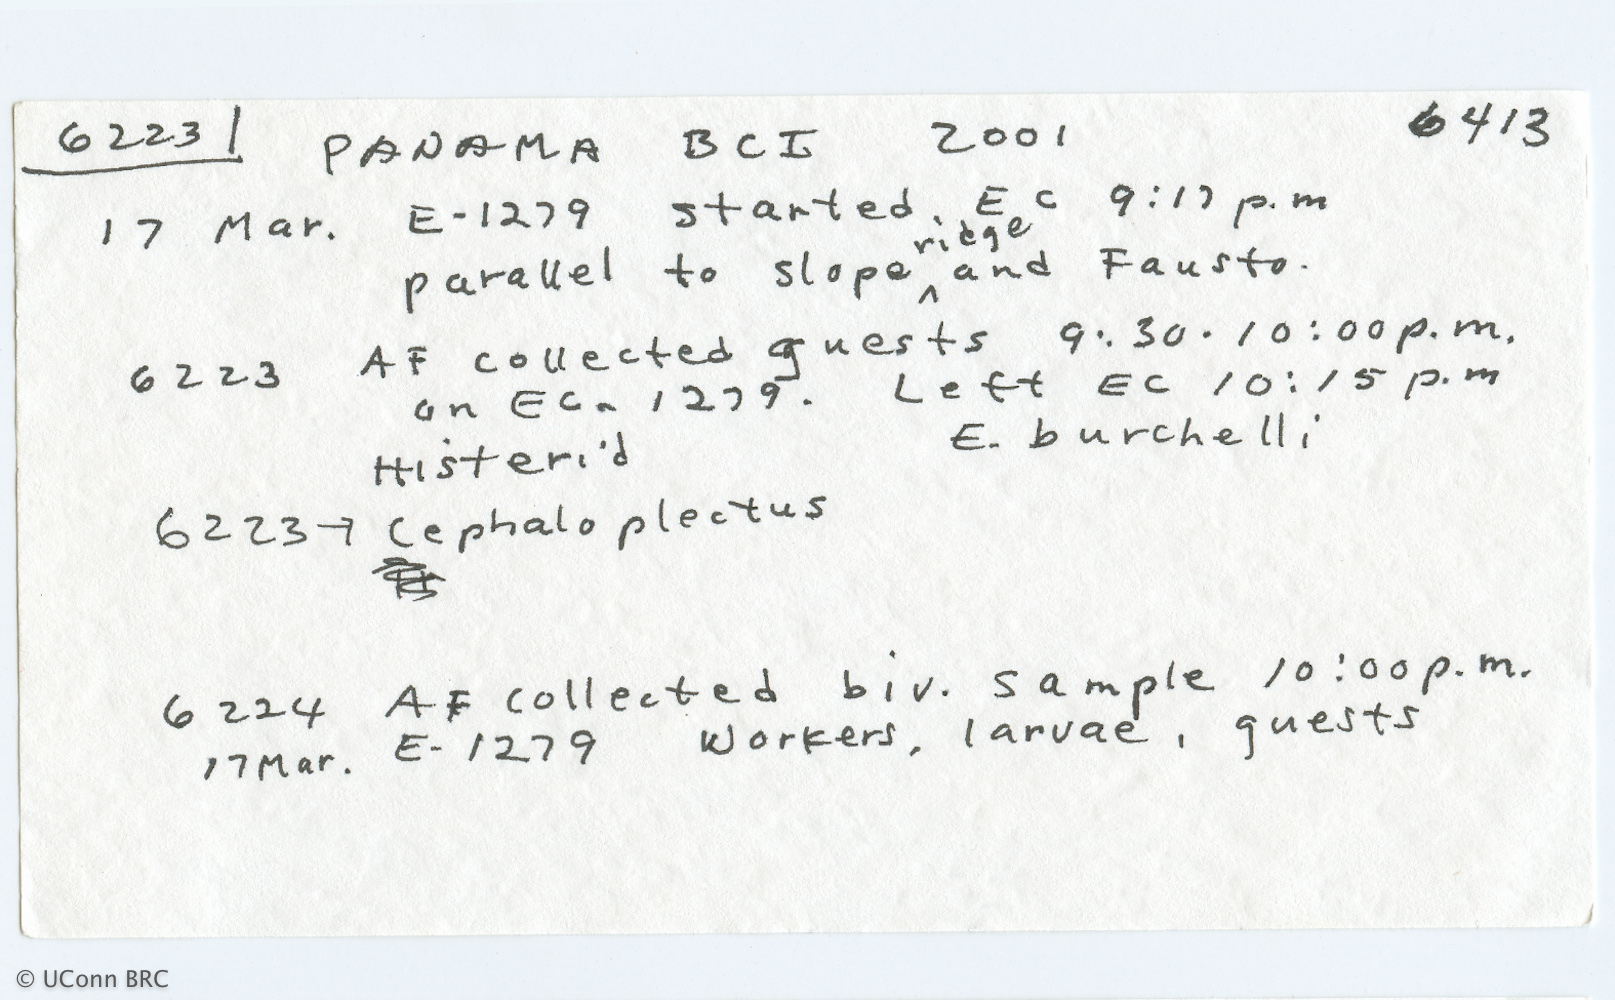 6223 PANAMA BCI 2001 6413
17 Mar. E-1279 started. EC 9:17 p.m
parallel to slope ridge and Fausto.
6223 AF collected guests 9:30-10:00 p.m.
on EC-1279. Left EC 10:15 p.m
Histerid E. burchelli
6223→ Cephaloplectus
6224 AF collected biv. sample 10:00 p.m.
17 Mar. E-1279 Workers, larvae, guests
© UConn BRC